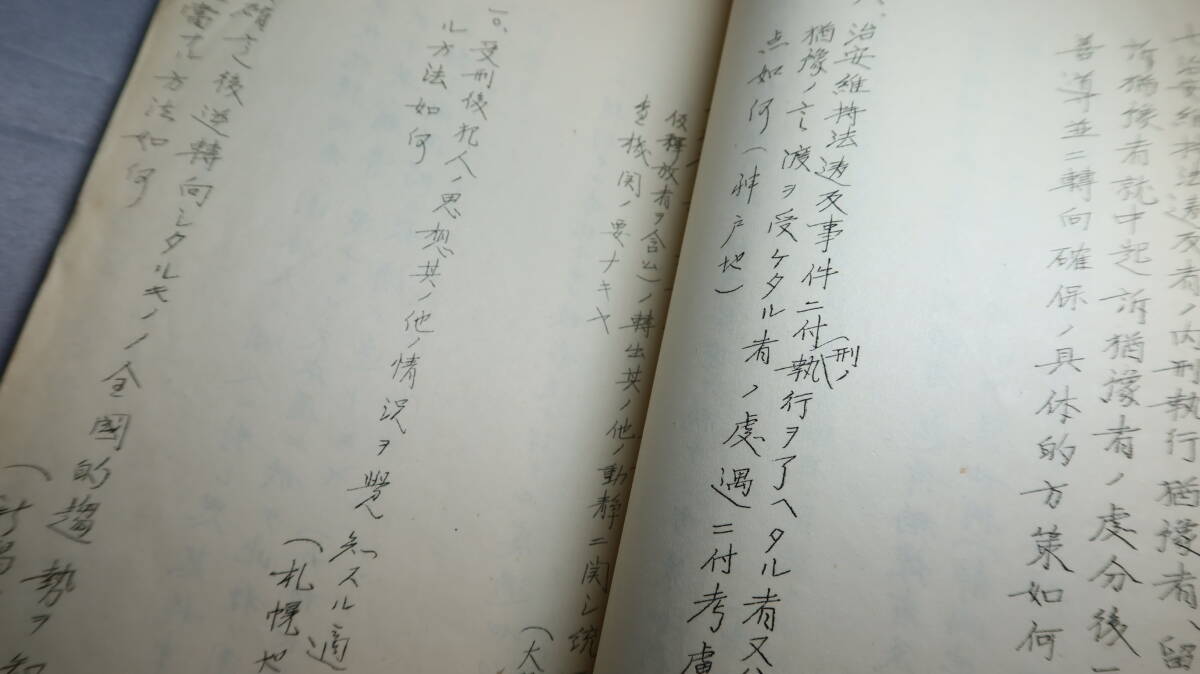 治安維持法違反者ノ内刑執行猶豫者、留
訴猶豫者就中起訴猶豫者ノ處分後
善導並ニ轉向確保ノ具体的方策如何
八、治安維持法違反事件ニ付(刑ノ)執行ヲ了ヘタル者又ハ
猶豫ノ言渡ヲ受ケタル者ノ處遇ニ付考慮
点如何(神戸地)
仮釋放者ヲ含ム)ノ轉出其ノ他ノ動静ニ関シ統
査機関ノ要ナキヤ
(大
一〇、受刑後犯人ノ思想其ノ他ノ情況ヲ覺知スル適
ル方法如何
(札幌地
後逆轉向シタルモノノ全國的趨勢ヲ知
當ナル方法如何